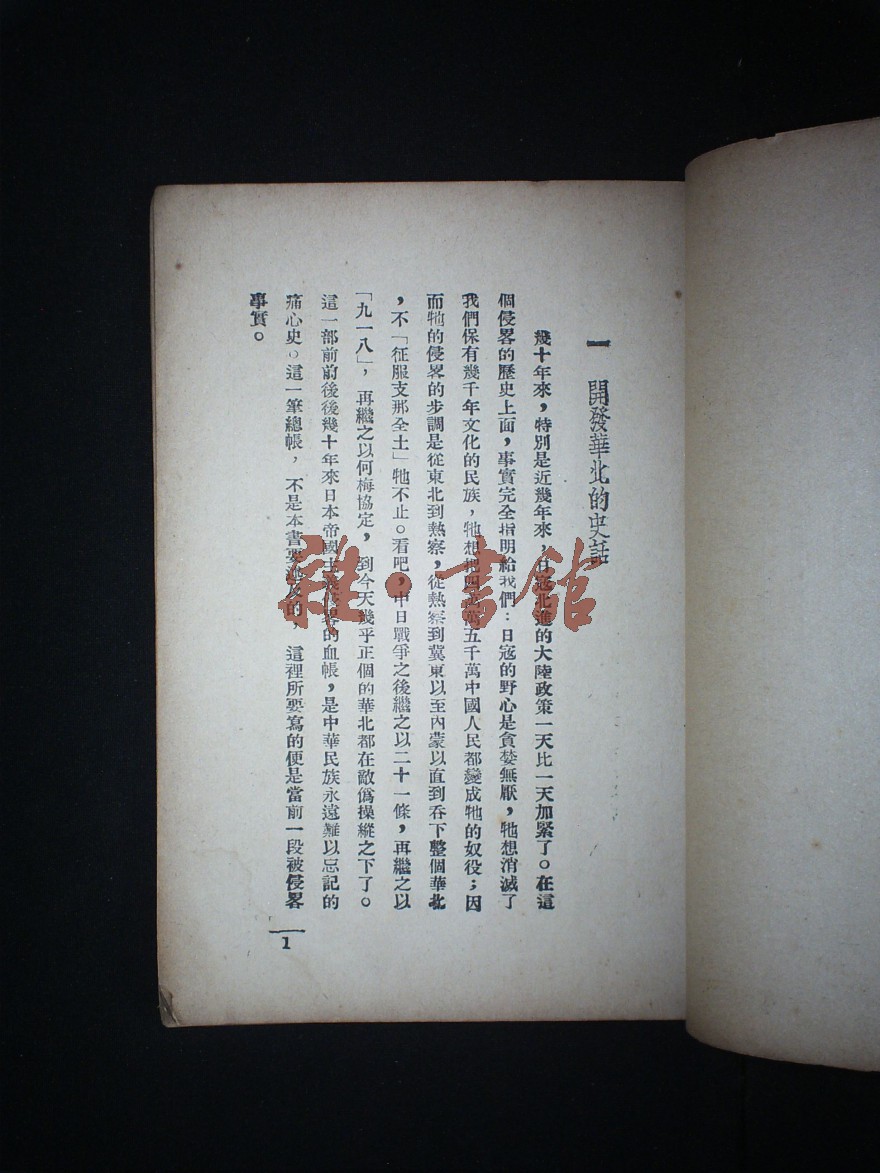 一 開發華北的史話
幾十年來，特別是近幾年來，日寇北進的大陸政策一天比一天加緊了。在這
個侵畧的歷史上面，事實完全指明給我們：日寇的野心是貪婪無厭，牠想消滅了
我們保有幾千年文化的民族，牠想把四萬萬五千萬中國人民都變成牠的奴役；因
而牠的侵畧的步調是從東北到熱察，從熱察到冀東以至內蒙以直到吞下整個華北
，不「征服支那全土」牠不止。看吧，中日戰爭之後繼之以二十一條，再繼之以
「九一八」，再繼之以何梅協定，到今天幾乎正個的華北都在敵僞操縱之下了。
這一部前前後後幾十年來日本帝國主義侵畧的血帳，是中華民族永遠難以忘記的
痛心史。這一筆總帳，不是本書要涉及的，這裡所要寫的便是當前一段被侵畧
事實。
1
雜·書館